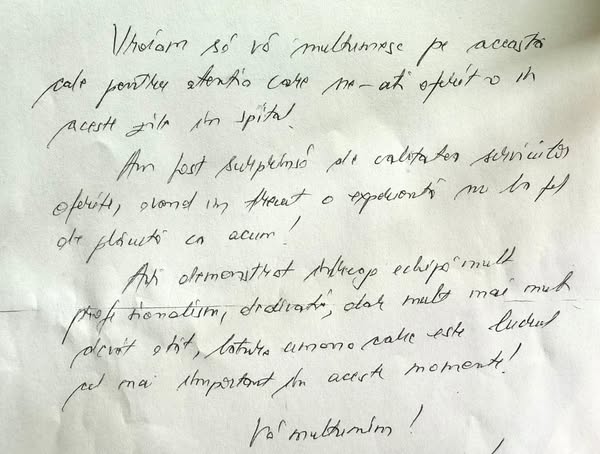 Vroiam să vă multumesc pe această
cale pentru atentia care ne-ati oferit-o in
aceste zile in spital.
Am fost surprinsă de calitatea serviciilor
oferite, avand in trecut o experientă nu la fel
de plăcută ca acum!
Ati demonstrat intreaga echipă mult
profesionalism, dedicatie, dar mult mai mult
decât atât, latura umana care este lucrul
cel mai important in aceste momente!
Vă multumim!